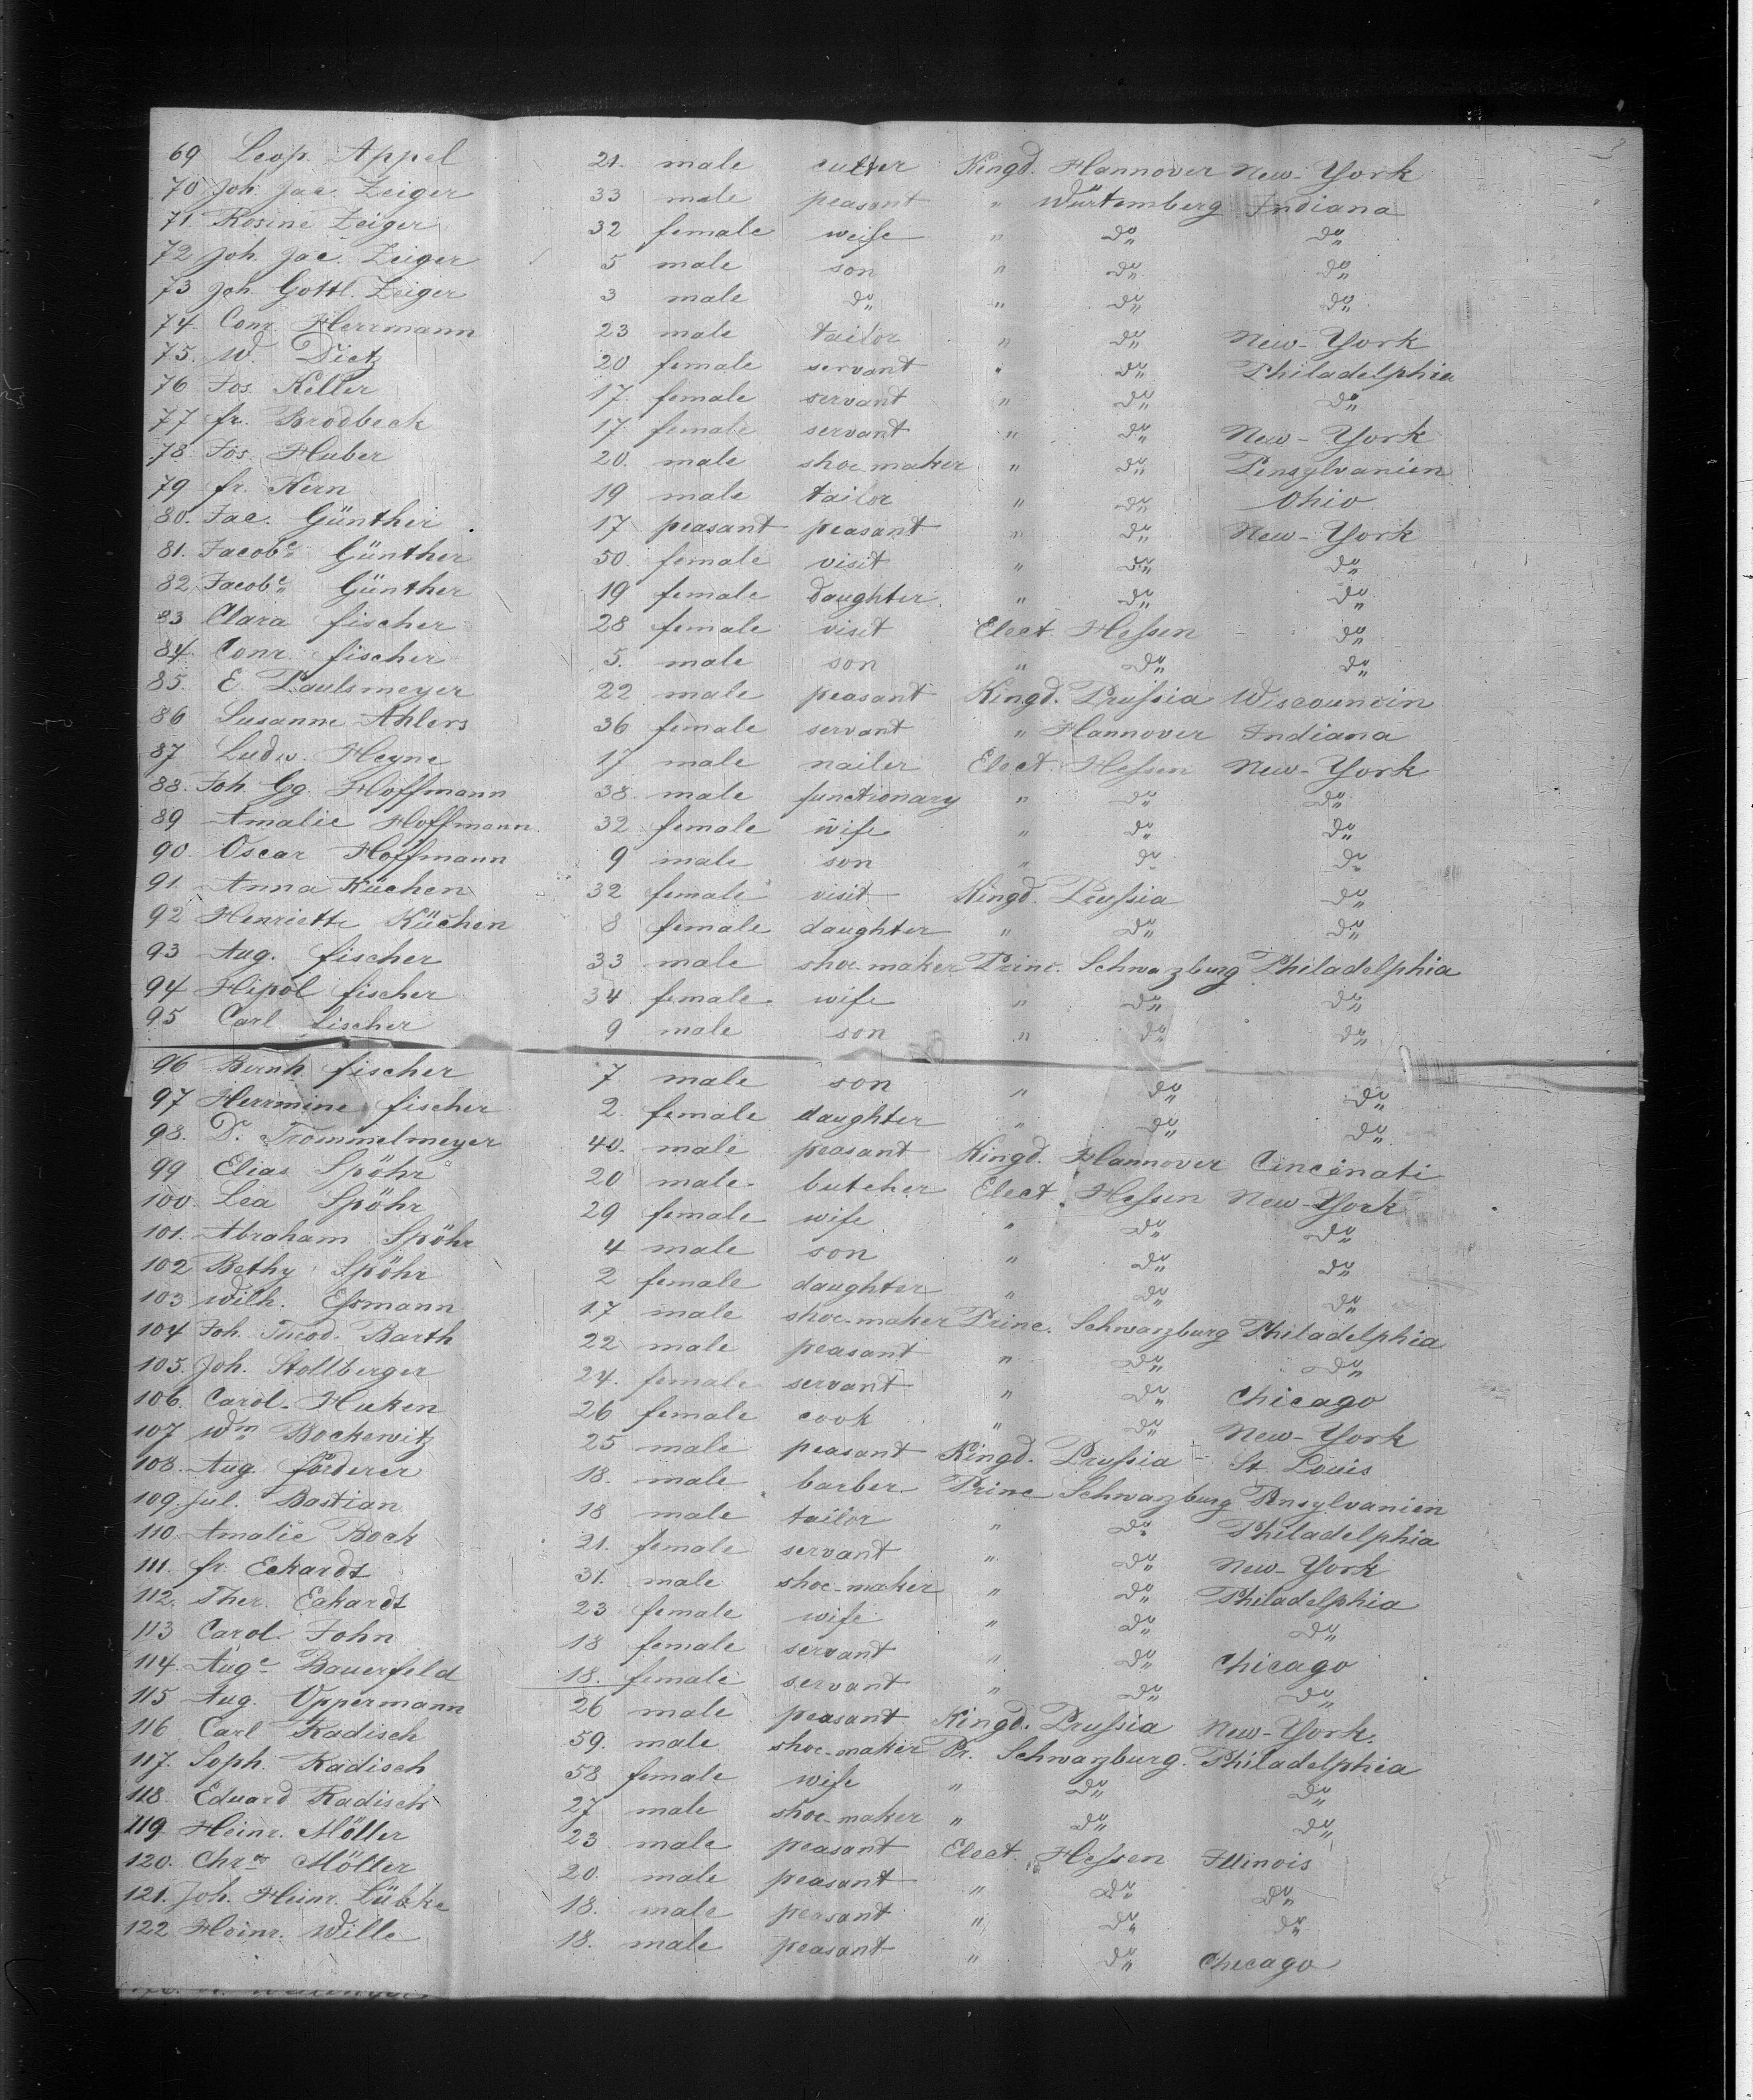 69 Leop. Appel 21. male cutter Kingd. Hannover New-York
70 Joh. Jac. Zeiger 33 male peasant " Würtemberg Indiana
71. Rosine Zeiger 32 female weife " do do
72 Joh. Jac. Zeiger 5 male son " do do
73 Joh. Gottl. Zeiger 3 male do " do do
74. Conr. Herrmann 23 male tailor " do New-York
75. W. Dietz 20 female servant " do Philadelphia
76 Jos. Keller 17. female servant " do do
77 fr. Brodbeck 17 female servant " do New-York
78. Jos. Huber 20. male shoe-maker " do Pensylvanien
79 fr. Kern 19 male tailor " do Ohio
80. Jac. Günther 17 peasant peasant " do New-York
81. Jacobe Günther 50. female visit " do do
82 Jacobe Günther 19 female daughter " do do
83 Clara fischer 28 female visit Elect. Hessen do
84. Conr. fischer 5. male son " do do
85. E. Paulsmeyer 22 male peasant Kingd. Prussia Wiscounsin
86 Susanne Ahlers 36 female servant " Hannover Indiana
87 Ludw. Heyne 17 male nailer Elect. Hessen New-York
88. Joh. Gg. Hoffmann 38 male functionary " do do
89 Amalie Hoffmann 32 female wife " do do
90. Oscar Hoffmann 9 male son " do do
91. Anna Küchen 32 female visit Kingd. Prussia do
92 Henriette Küchen 8 female daughter " do do
93 Aug. fischer 33 male shoe-maker Princ. Schwazburg Philadelphia
94 Hipol fischer 34 female wife " do do
95 Carl fischer 9 male son " do do
96 Bernh. fischer 7 male son " do do
97 Herrmine fischer 2. female daughter " do do
98. D. Trommelmeyer 40. male peasant Kingd. Hannover Cincinati
99 Elias Spöhr 20 male butcher Elect. Hessen New-York
100. Lea Spöhr 29 female wife " do do
101. Abraham Spöhr 4 male son " do do
102 Bethy Spöhr 2 female daughter " do do
103 Wilh. Essmann 17 male shoe-maker Princ. Schwarzburg Philadelphia
104 Joh. Theod. Barth 22 male peasant " do do
105. Joh. Stollberger 24. female servant " do Chicago
106. Carol. Huken 26 female cook " do New-York
107 Wm Bockewitz 25 male peasant Kingd. Prussia St. Louis
108. Aug. förderer 18. male barber Princ Schwarzburg Pensylvanien
109. Jul. Bastian 18 male tailor " do Philadelphia
110. Amalie Bock 21. female servant " do New-York
111. fr. Eckardt 31. male shoe-maker " do Philadelphia
112. Ther. Eckardt 23 female wife " do do
113 Carol. John 18 female servant " do Chicago
114. Auge Bauerfeld 18. female servant " do do
115 Aug. Oppermann 26 male peasant Kingd. Prussia New-York.
116 Carl Radisch 59. male shoe-maker Pr. Schwarzburg. Philadelphia
117. Soph. Radisch 58 female wife " do do
118. Eduard Radisch 27 male shoe-maker " do do
119. Heinr. Möller 23. male peasant Elect. Hessen Illinois
120. Chr. Möller 20. male peasant " do do
121. Joh. Heinr. Lübke 18. male peasant " do do
122 Heinr. Wille 18. male peasant " do Chicago